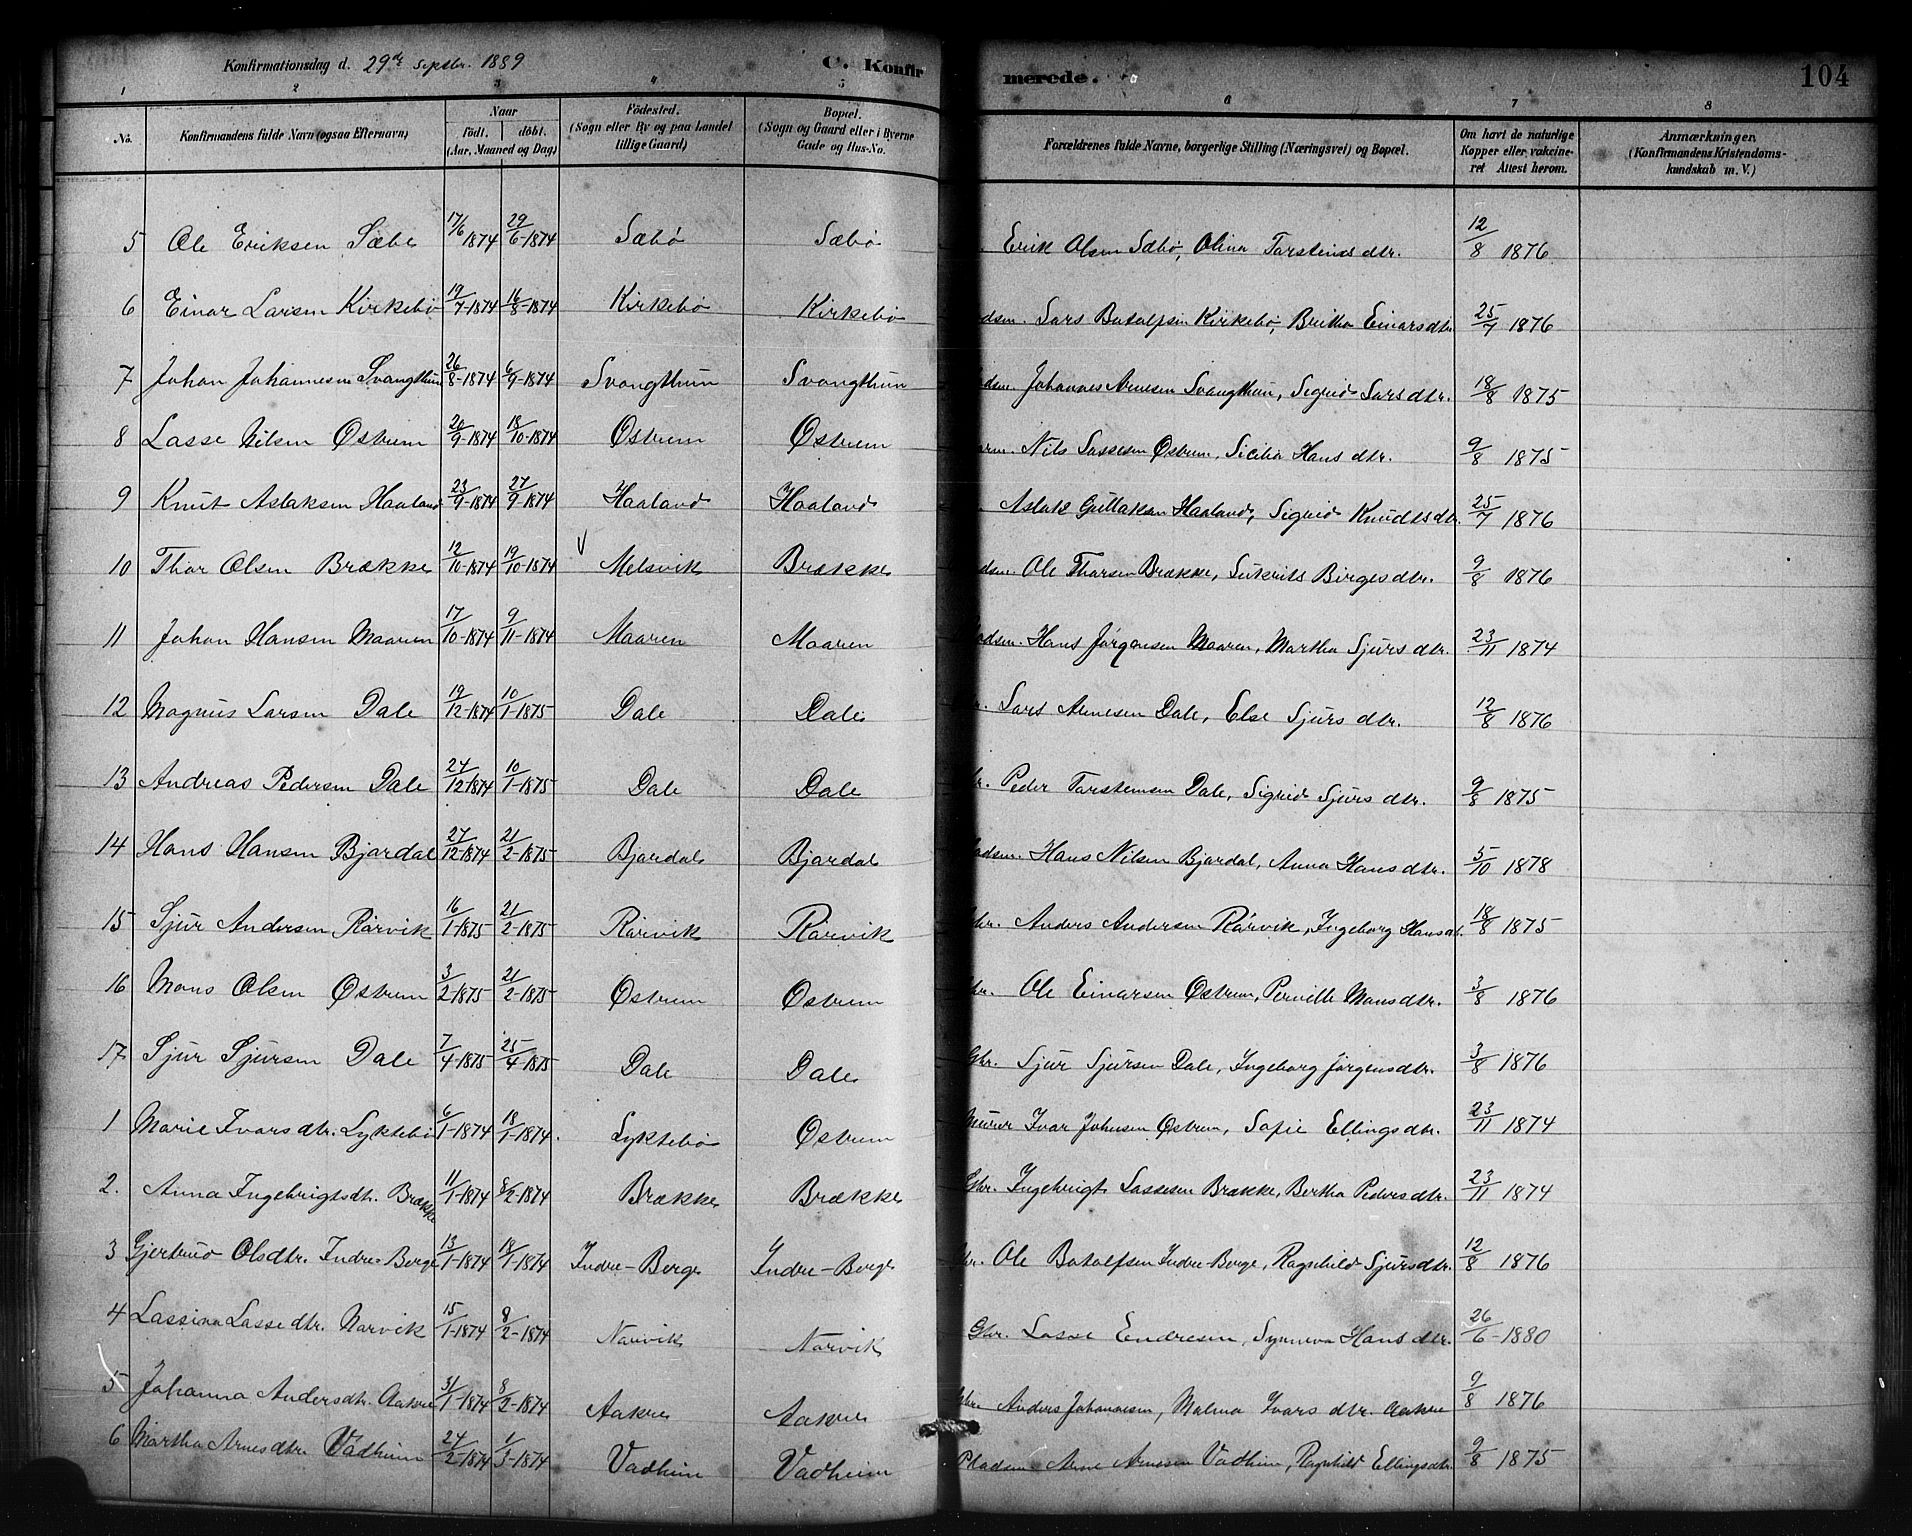 Konfirmationsdag d. 29de Septbr. 1889 C. Konfirmerede. 104
1 2 3 4 5 6 7 8
No. Konfirmandens fulde Navn (ogsaa Efternavn) Naar födt. döbt. (Aar, Maaned og Dag) Födested. (Sogn eller By og paa Landet tillige Gaard) Bopæl. (Sogn og Gaard eller i Byerne Gade og Hus-No. Forældrenes fulde Navne, borgerlige Stilling (Næringsvei) og Bopæl. Om havt de naturlige Kopper eller vakcineret Attest herom. Anmærkninger. (Konfirmandens Kristendomskundskab m. V.)
5 Ole Eriksen Sæbø 17/6 1874 29/6-1874 Sæbø Sæbø Erik Olsen Sæbø, Olina Torsteinsdtr. 12/8 1876
6 Einar Larsen Kirkebø 19/7-1874 16/8-1874 Kirkebø Kirkebø dsm. Lars Botolfsen Kirkebø, Britha Einarsdtr 25/7 1876
7 Johan Johannesen Svangthun 26/8-1874 6/9-1874 Svangthun Svangthun dsm. Johannes Arnesen Svangthun, Sigrid Larsdtr. 18/8 1875
8 Lasse Nilsen Østrem 20/9-1874 18/10-1874 Østrem Østrem Nils Lassesen Østrem, Sicilia Hansdtr. 9/8 1875
9 Knut Aslaksen Haaland 23/9-1874 27/9-1874 Haaland Haaland Aslak Gullaksen Haaland, Sigrid Knudtsdtr. 25/7 1876
10 Thor Olsen Brække 12/10-1874 19/10-1874 V Melsvik Brække dsm. Ole Thorsen Brække, Birgesdtr. 9/8 1876
11 Johan Hansen Maaren 17/10-1874 9/11-1874 Maaren Maaren adsm. Hans Jørgensen Maaren, Martha Sjursdtr. 23/11 1874
12 Magnus Larsen Dale 19/12-1874 10/1-1875 Dale Dale r. Lars Arnesen Dale, Else Sjursdtr. 12/8 1876
13 Andreas Pedersen Dale 24/12-1874 10/1-1875 Dale Dale r. Peder Torsteinsen Dale, Sigrid Sjursdtr. 9/8 1875
14 Hans Hansen Bjordal 27/12-1874 21/2-1875 Bjordal Bjordal adsm. Hans Nilsen Bjordal, Anna Hansdtr. 5/10 1878
15 Sjur Andersen Rørvik 16/1-1875 21/2-1875 Rørvik Rørvik Gbr. Anders Andersen Rørvik, Ingeborg Hansdt. 18/8 1875
16 Mons Olsen Østrem 3/2-1875 21/2-1875 Østrem Østrem br. Ole Einarsen Østrem, Pernille Monsdtr. 3/8 1876
17 Sjur Sjursen Dale 7/4-1875 25/4-1875 Dale Dale Gbr. Sjur Sjursen Dale, Ingeborg Jørgensdtr. 3/8 1876
1 Marie Ivarsdtr. Lyktebø 6/1-1874 18/1-1874. Lyktebø Østrem Murer Ivar Johnsen Østrem, Sofie Ellingsdtr. 23/11 1874
2. Anna Ingebrigtsdtr. Brække 11/1-1874 8/2-1874 Brække Brække Gbr. Ingebrigt Lassesen Brække, Bertha Pedersdtr. 23/11 1874
3 Gjertrud Olsdtr. Indre-Berge 13/1-1874 18/1-1874 Indre-Berge Indre-Berge br. Ole Botolfsen Indre-Berge, Ragnhild Sjursdtr. 12/8 1876
4 Lassina Lassedtr. Norvik 15/1-1874 8/2-1874 Norvik Norvik Gbr. Lasse Endresen, Synneva Hansdtr. 26/6-1880
5 Johanna Andersdtr. Aakre 31/1-1874 8/2-1874 Aakre Aakre Gbr Anders Johannesen, Malena Ivarsdtr. Aakre 9/8 1876
6 Martha Arnesdtr Vadheim 24/2-1874 1/3-1874 Vadheim Vadheim Pladsm Arne Arnesen Vadheim, Ragnhild Ellingsdtr. 9/8 1875